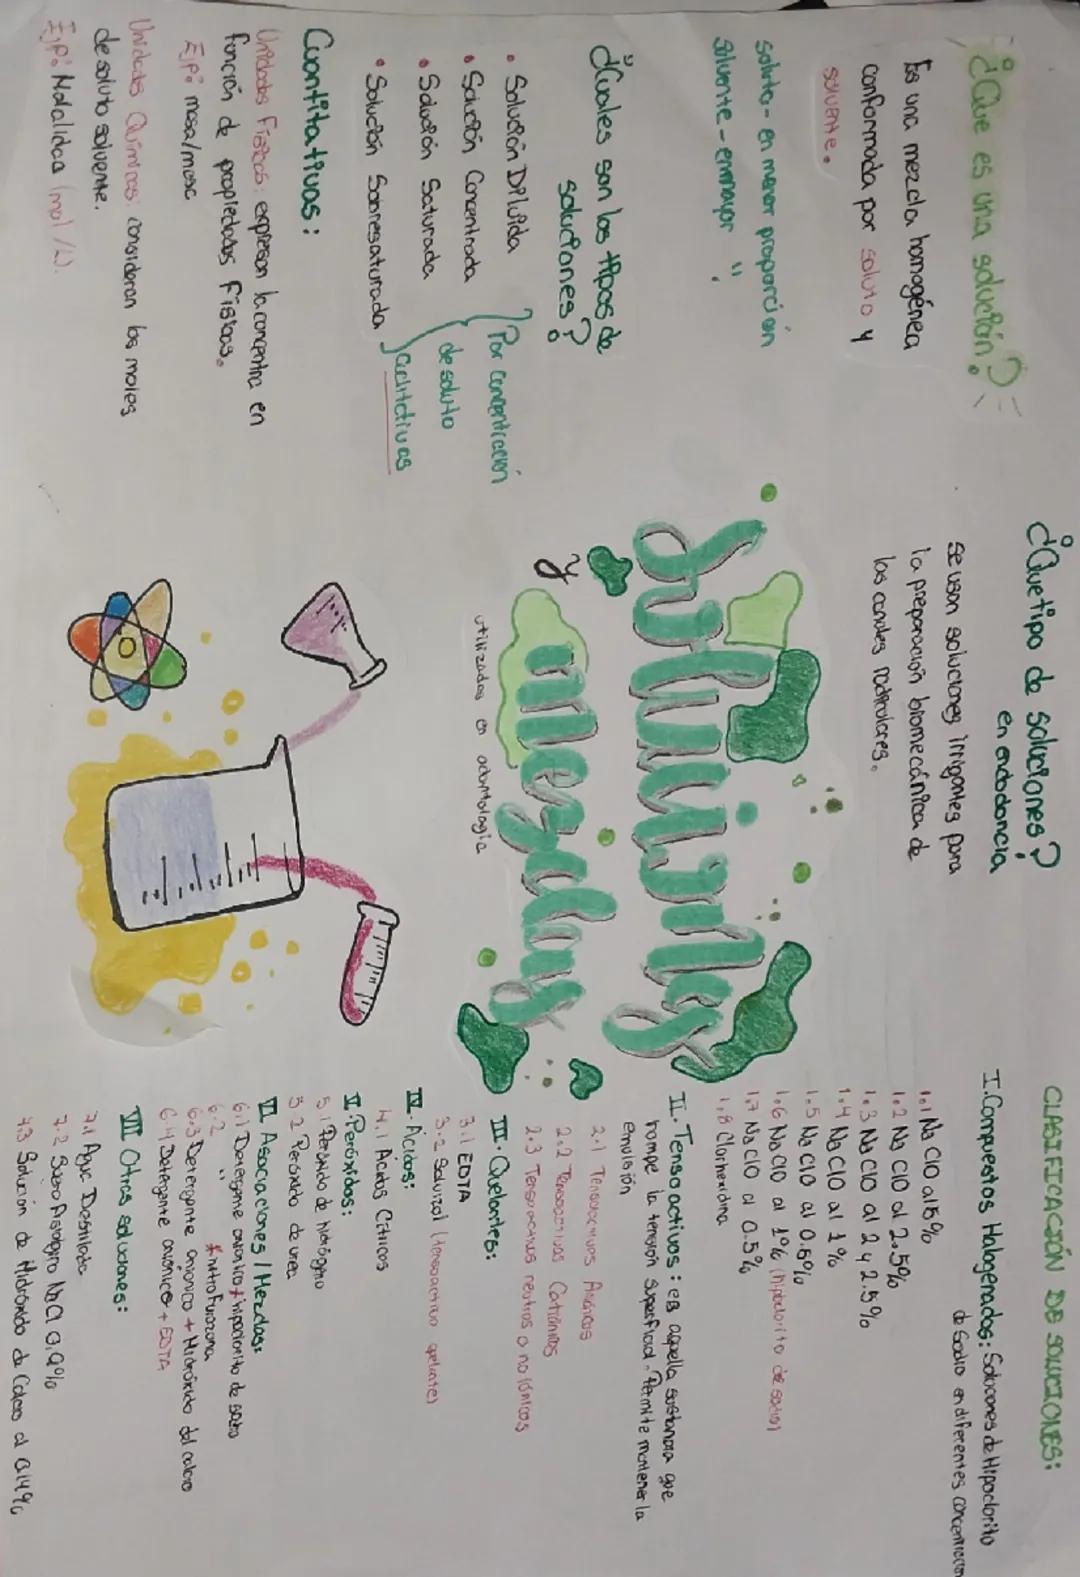 ¿Que es una solución?
Es una mezcla homogénea
conformada por soluto y
solvente.
soluto - en menor proporción
solvente - enmayor " .
¿Cuales son los tipos de
soluciones?
• Solución Diluida
• Solución Concentrada
• Solución Saturada
• Solución Sobresaturada
Por concentración
de soluto
Cualitativas
Cuantitativas:
Unidades Físicas: expresan la concentra en
función de propiedades físicas.
Ejp: masa/masa
Unidades Químicas: consideran los moles
de soluto solvente.
Ejp: Molalidad (mol/L).
¿Que tipo de soluciones?
en endodoncia
se usan soluciones irrigantes para
la preparación biomecánica de
los canales radiculares.
Soluciones
y
mezclas
utilizadas en odontologia
CLASIFICACIÓN DE SOLUCIONES:
I. Compuestos Halogenados: Soluciones de Hipoclorito
de Sodio en diferentes concentracion
1.1 NaClO al 5%
1.2 NaClO al 2.5%
1.3 NaClO al 2 y 2.5%
1.4 NaClO al 1%
1.5 NaClO al 0.5%
1.6 NaClO al 1% (hipoclorito de sodio)
1.7 NaClO al 0.5%
1.8 Clorhexidina
II. Tensoactivos: es aquella sustancia que
rompe la tensión superficial. Permite mantener la
emulsión
2.1 Tensoactivos Aniónicos
2.2 Tensoactivos Catiónicos
2.3 Tensoactivos neutros o no iónicos
III. Quelantes:
3.1 EDTA
3.2 Salvizol (tensoactivo quelante)
IV. Acidos:
4.1 Acidos Citricos
V. Peróxidos:
5.1 Peróxido de hidrógeno
5.2 Peróxido de urea
VI. Asociaciones / Mezclas:
6.1 Detergente anionico + hipoclorito de sodio
6.2 " + nitrofurazona
6.3 Detergente anionico + Hidróxido del calcio
6.4 Detergente anionico + EDTA
VII Otras soluciones:
7.1 Agua Destilada
7.2 Suero Fisiologico NaCl 0,9%
7.3 Solución de Hidróxido de Calcio al 0.14%